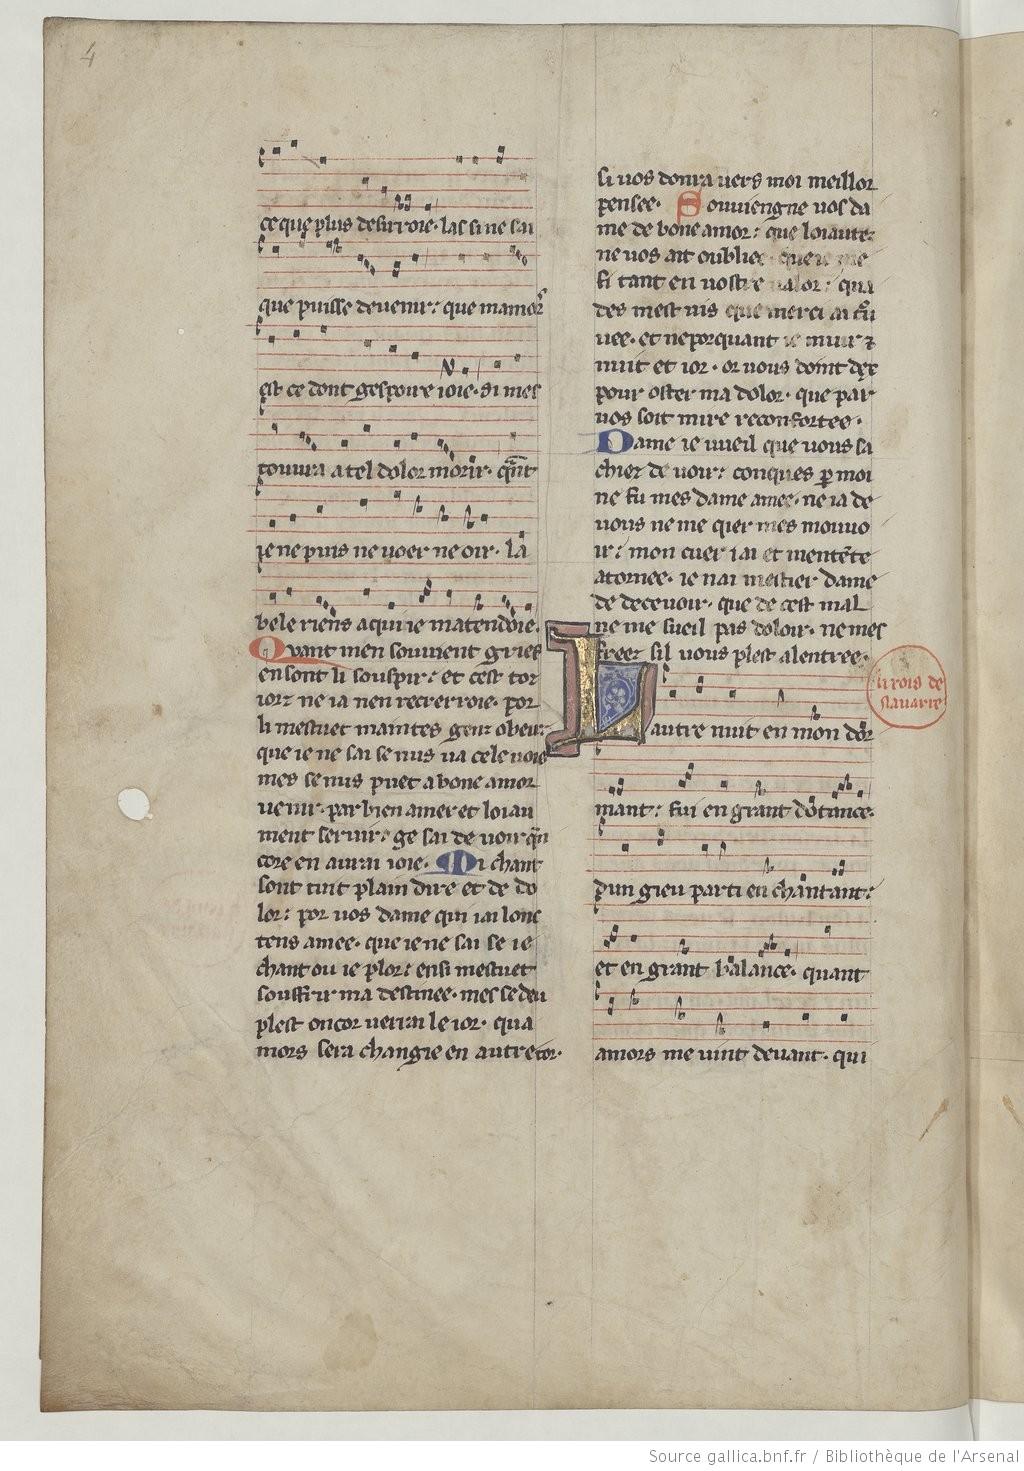 4
ce que plus desirroie· las si ne sai
que puisse deuenir: que mamor̃
est ce dont gespoire ioie· si mes
couura a tel dolor morir· qᵃnt
ie ne puis ne uoer ne oir· la
bele riens a qui ie matendoie·
Quant men souuient grief
en sont li souspir: et cest tor
iorz ne ia nen recrerroie· por
li mestuet maintes genz obeir:
que ie ne sai se nus ua cele uoie
mes se nus puet a bone amor
uenir· par bien amer et loiau
ment seruir· ge sai de uoir qᵃn
core en aurai ioie· Mi chant
sont tuit plain dire et de do
lor: por uos dame qui iai lonc
tens amee· que ie ne sai se ie
chant ou ie plor: ensi mestuet
souffrir ma destinee· mes se deu
plest oncor uerrai le ior· qua
mors sera changie en autre tor·
si uos donra uers moi meillor
pensee· Souuiengne uos da
me de bone amor: que loiaute
ne uos ait oubliee· que ie me
fi tant en uostre ualor: qua
des mest uis que merci ai tͦu
uee· et neporquant ie muir ⁊
nuit et ior· or uous doint dex
pour oster ma dolor· que par
uos soit mire reconfortee·
Dame ie uueil que uous sa
chiez de uoir: conques ꝑ moi
ne fu mes dame amee· ne ia de
uous ne me qier mes mouuo
ir: mon cuer i ai et mentēte
atornee· ie nai mestier dame
de deceuoir· que de cest mal
ne me sueil pas doloir· ne mes
freez sil uous plest a lentree·
li rois de
nauarre
Lautre nuit en mon dor
mant: fui en grant dotance·
dun gieu parti en chantant:
et en grant balance· quant
amors me uint deuant· qui
Source gallica.bnf.fr / Bibliothèque de l'Arsenal